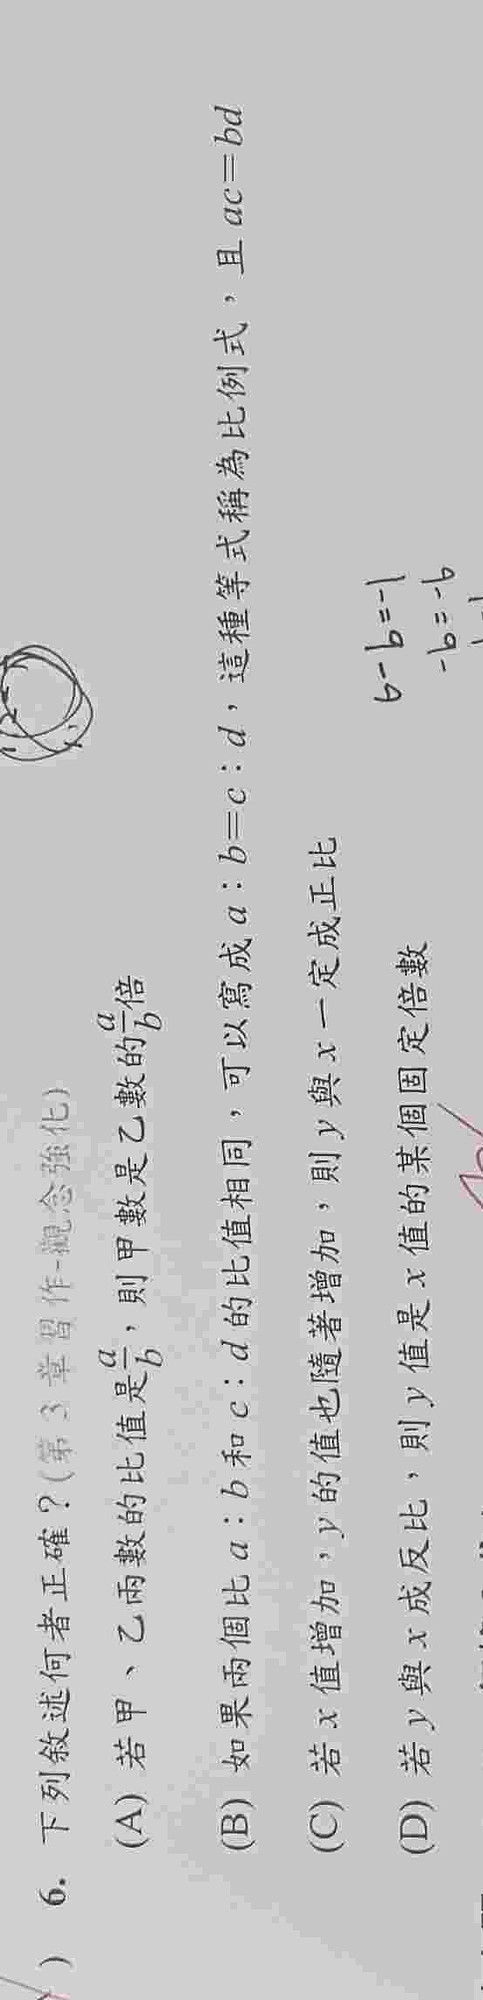 ) 6. 下列敘述何者正確？(第 3 章習作-觀念強化)
(A) 若甲、乙兩數的比值是a/b，則甲數是乙數的a/b倍
(B) 如果兩個比 a：b 和 c：d 的比值相同，可以寫成 a：b＝c：d，這種等式稱為比例式，且 ac＝bd
(C) 若 x 值增加，y 的值也隨著增加，則 y 與 x 一定成正比
(D) 若 y 與 x 成反比，則 y 值是 x 值的某個固定倍數
6-b=-1
-b=-6